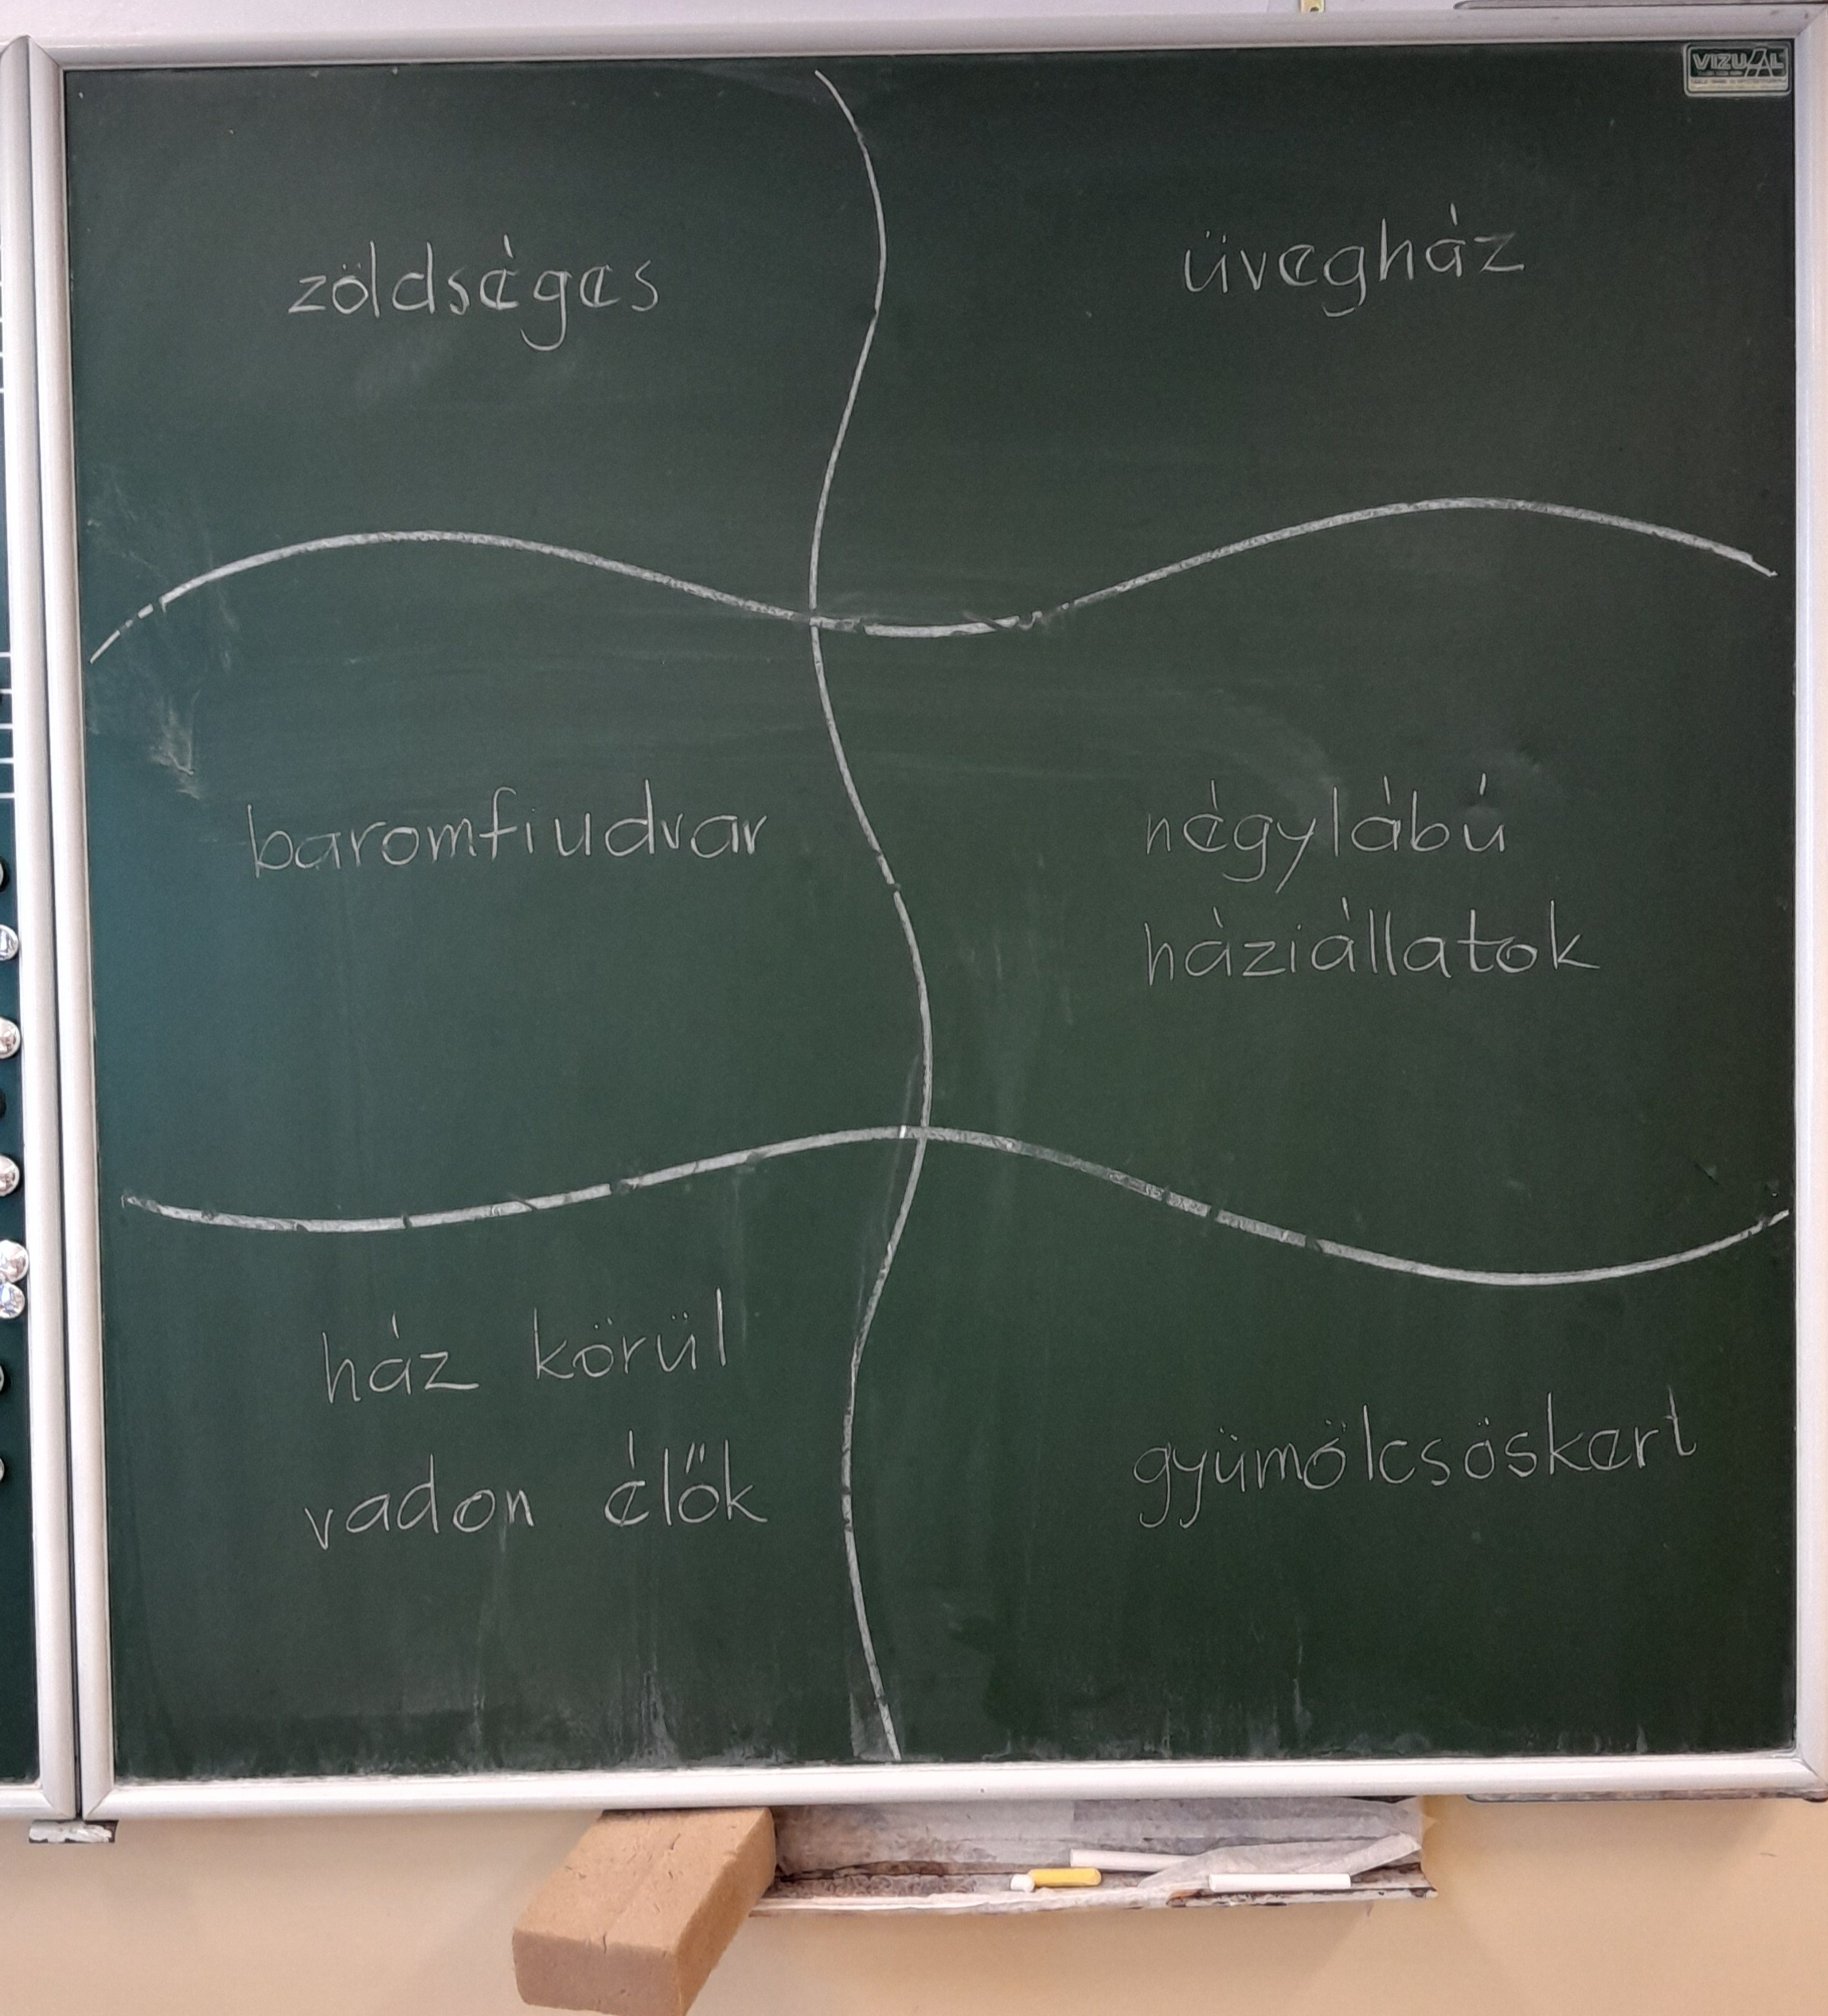 VIZUÁL
zöldséges
üvegház
baromfiudvar
négylábú
háziállatok
ház körül
vadon élők
gyümölcsöskert